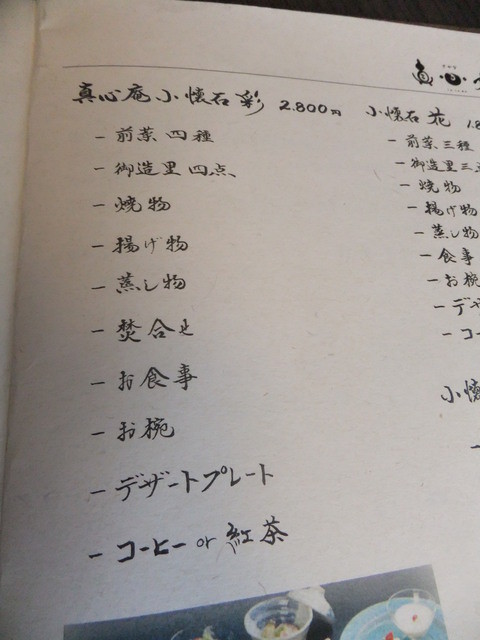 真心庵小懐石 彩 2.800円
- 前菜 四種
- 御造里四点
- 焼物
- 揚げ物
- 蒸し物
- 焚合せ
- お食事
- お椀
- デザートプレート
- コーヒー or 紅茶
小懐石 花 1.8
- 前菜 三種
- 御造里三
- 焼物
- 揚げ物
- 蒸し物
- 食事
- お椀
- デザ
- コー
小懐